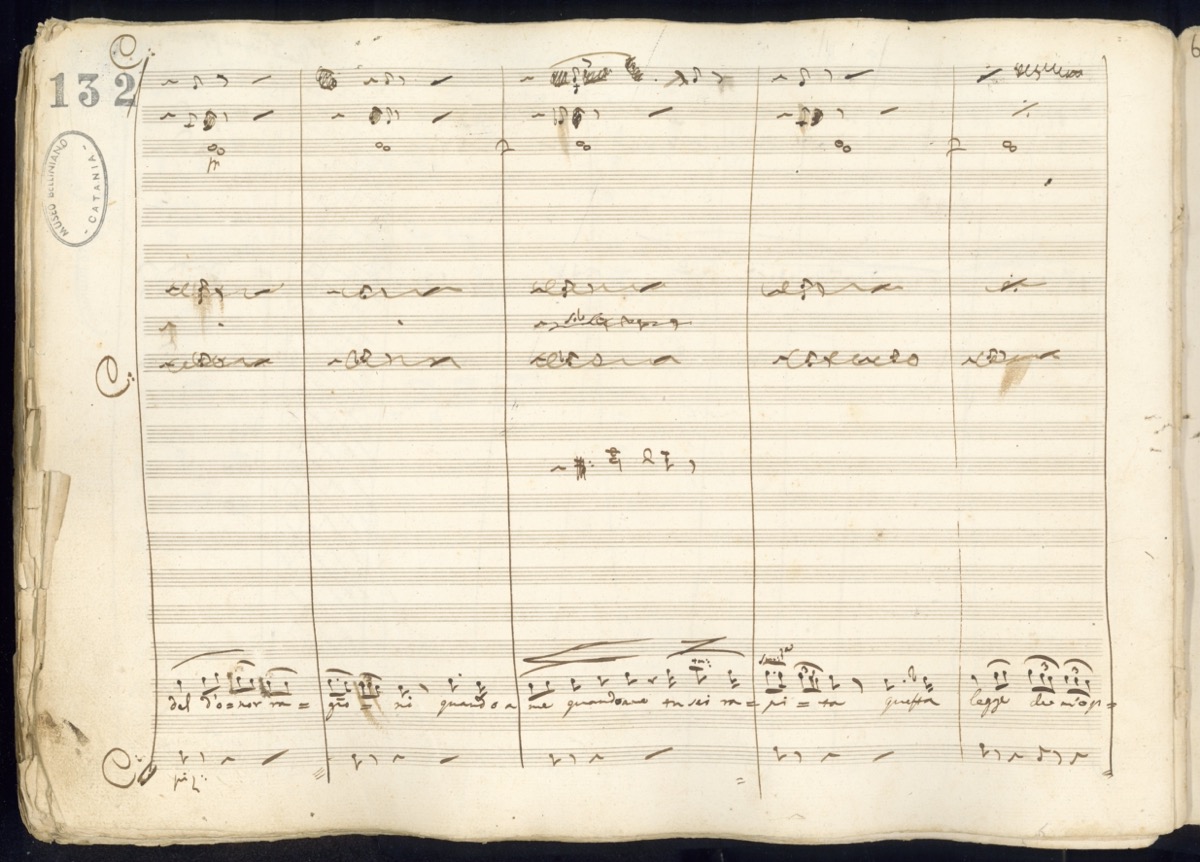 132
6
MUSEO BELLINIANO
- CATANIA -
del d'onor ra = gio = no quando a me quando me tu sei ra = pi = ta questa legge